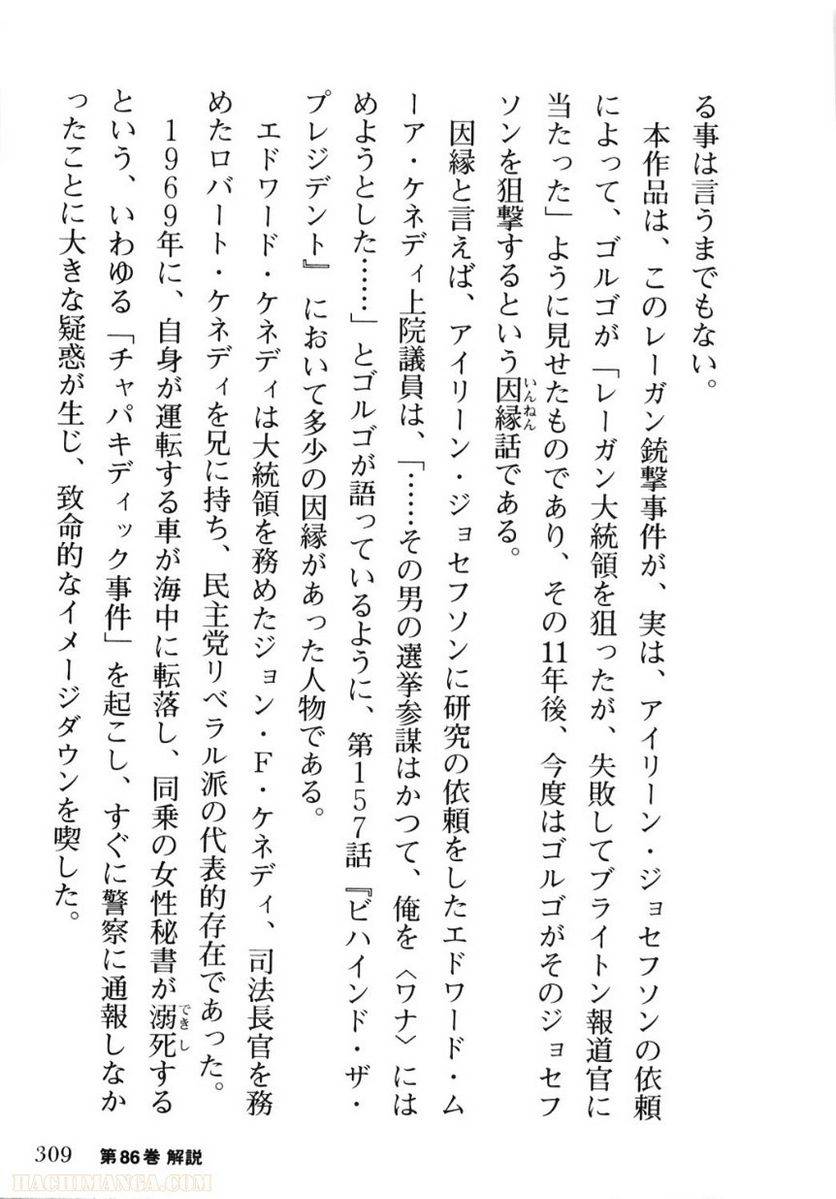 る事は言うまでもない。
本作品は、このレーガン銃撃事件が、実は、アイリーン・ジョセフソンの依頼
によって、ゴルゴが「レーガン大統領を狙ったが、失敗してブライトン報道官に
当たった」ように見せたものであり、その11年後、今度はゴルゴがそのジョセフ
ソンを狙撃するという因縁話である。
いんねん
因縁と言えば、アイリーン・ジョセフソンに研究の依頼をしたエドワード・ム
ーア・ケネディ上院議員は、「……その男の選挙参謀はかつて、俺を〈ワナ〉には
めようとした……」とゴルゴが語っているように、第157話『ビハインド・ザ・
プレジデント』において多少の因縁があった人物である。
エドワード・ケネディは大統領を務めたジョン・F・ケネディ、司法長官を務
めたロバート・ケネディを兄に持ち、民主党リベラル派の代表的存在であった。
1969年に、自身が運転する車が海中に転落し、同乗の女性秘書が溺死する
できし
という、いわゆる「チャパキディック事件」を起こし、すぐに警察に通報しなか
ったことに大きな疑惑が生じ、致命的なイメージダウンを喫した。
309 第86巻 解説
HACHIMANGA.COM